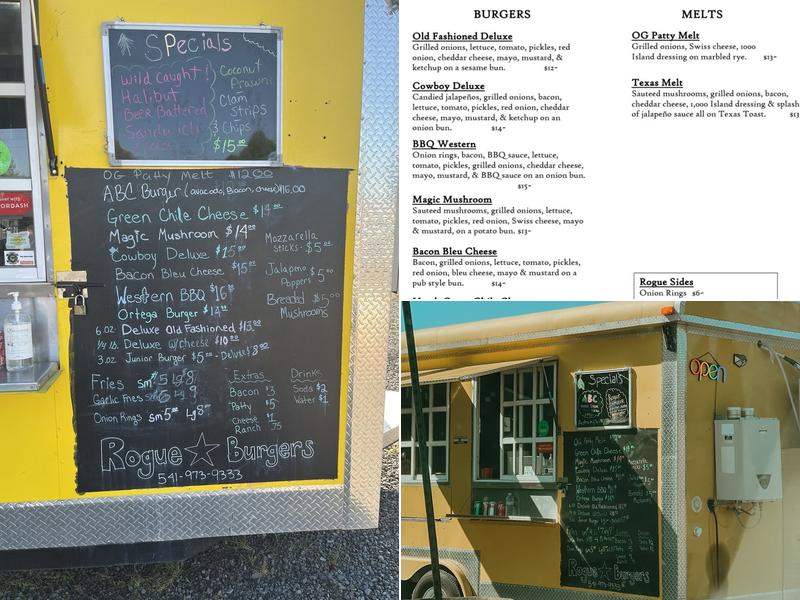 Specials
Wild caught!
Halibut
Beer Battered
Sandwich
Coconut
Prawns
Clam
Strips
& Chips
$15.00
OG Patty Melt $12.00
ABC Burger (avacado, Bacon, cheese) $16.00
Green Chile Cheese $14.00
Magic Mushroom $14.00
Cowboy Deluxe $15.00
Bacon Bleu Cheese $15.00
Western BBQ $16
Ortega Burger $14
6 oz. Deluxe Old Fashioned $13.00
1/4 lb. Deluxe w/cheese $10.00
3 oz. Junior Burger $5.00 - Deluxe $8.00
Mozzarella
Sticks - $5.00
Jalapeno
Poppers $5.00
Breaded $5.00
Mushrooms
Fries sm 5 Lg 8
Garlic Fries sm 6 Lg 9
Onion Rings sm 5 Lg 8
Extras
Bacon $3
Patty $5
Cheese $1
Ranch .75
Drinks
Soda $2
Water $1
Rogue Burgers
541-973-9333
DOORDASH
BURGERS
Old Fashioned Deluxe
Grilled onions, lettuce, tomato, pickles, red
onion, cheddar cheese, mayo, mustard, &
ketchup on a sesame bun. $12~
Cowboy Deluxe
Candied jalapeños, grilled onions, bacon,
lettuce, tomato, pickles, red onion, cheddar
cheese, mayo, mustard, & ketchup on an
onion bun. $14~
BBQ Western
Onion rings, bacon, BBQ sauce, lettuce,
tomato, pickles, grilled onions, cheddar cheese,
mayo, mustard, & BBQ sauce on an onion bun.
$15~
Magic Mushroom
Sauteed mushrooms, grilled onions, lettuce,
tomato, pickles, red onion, Swiss cheese, mayo
& mustard, on a potato bun. $13~
Bacon Bleu Cheese
Bacon, grilled onions, lettuce, tomato, pickles,
red onion, bleu cheese, mayo & mustard on a
pub style bun. $14~
MELTS
OG Patty Melt
Grilled onions, Swiss cheese, 1000
Island dressing on marbled rye. $13~
Texas Melt
Sauteed mushrooms, grilled onions, bacon,
cheddar cheese, 1,000 Island dressing & splash
of jalapeño sauce all on Texas Toast. $13
Rogue Sides
Onion Rings $6~
open
Specials
ABC
OG Patty Melt
Green Chile Cheese $14
Magic Mushroom $14
Cowboy Deluxe
Bacon Bleu Cheese
Western BBQ $16
Ortega Burger
Rogue Burgers
541-973-9333